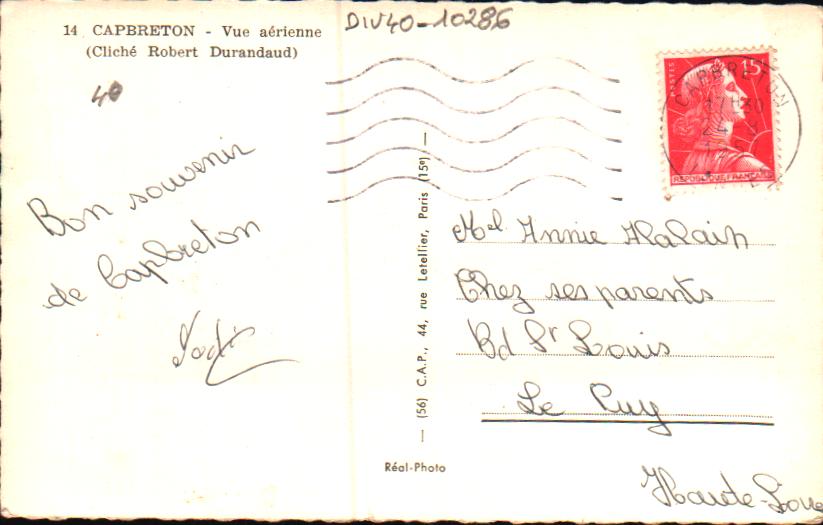 DIV40-10286
14 CAPBRETON - Vue aérienne
(Cliché Robert Durandaud)
40
Bon souvenir
de Capbreton
(56) C.A.P., 44, rue Letellier, Paris (15e)
Réal-Photo
POSTES
15
REPUBLIQUE FRANÇAISE
CAPBRETON
17H30
24
Mel Annie Alalain
Chez ses parents
Bd St Louis
Le Puy
Haute-Loire